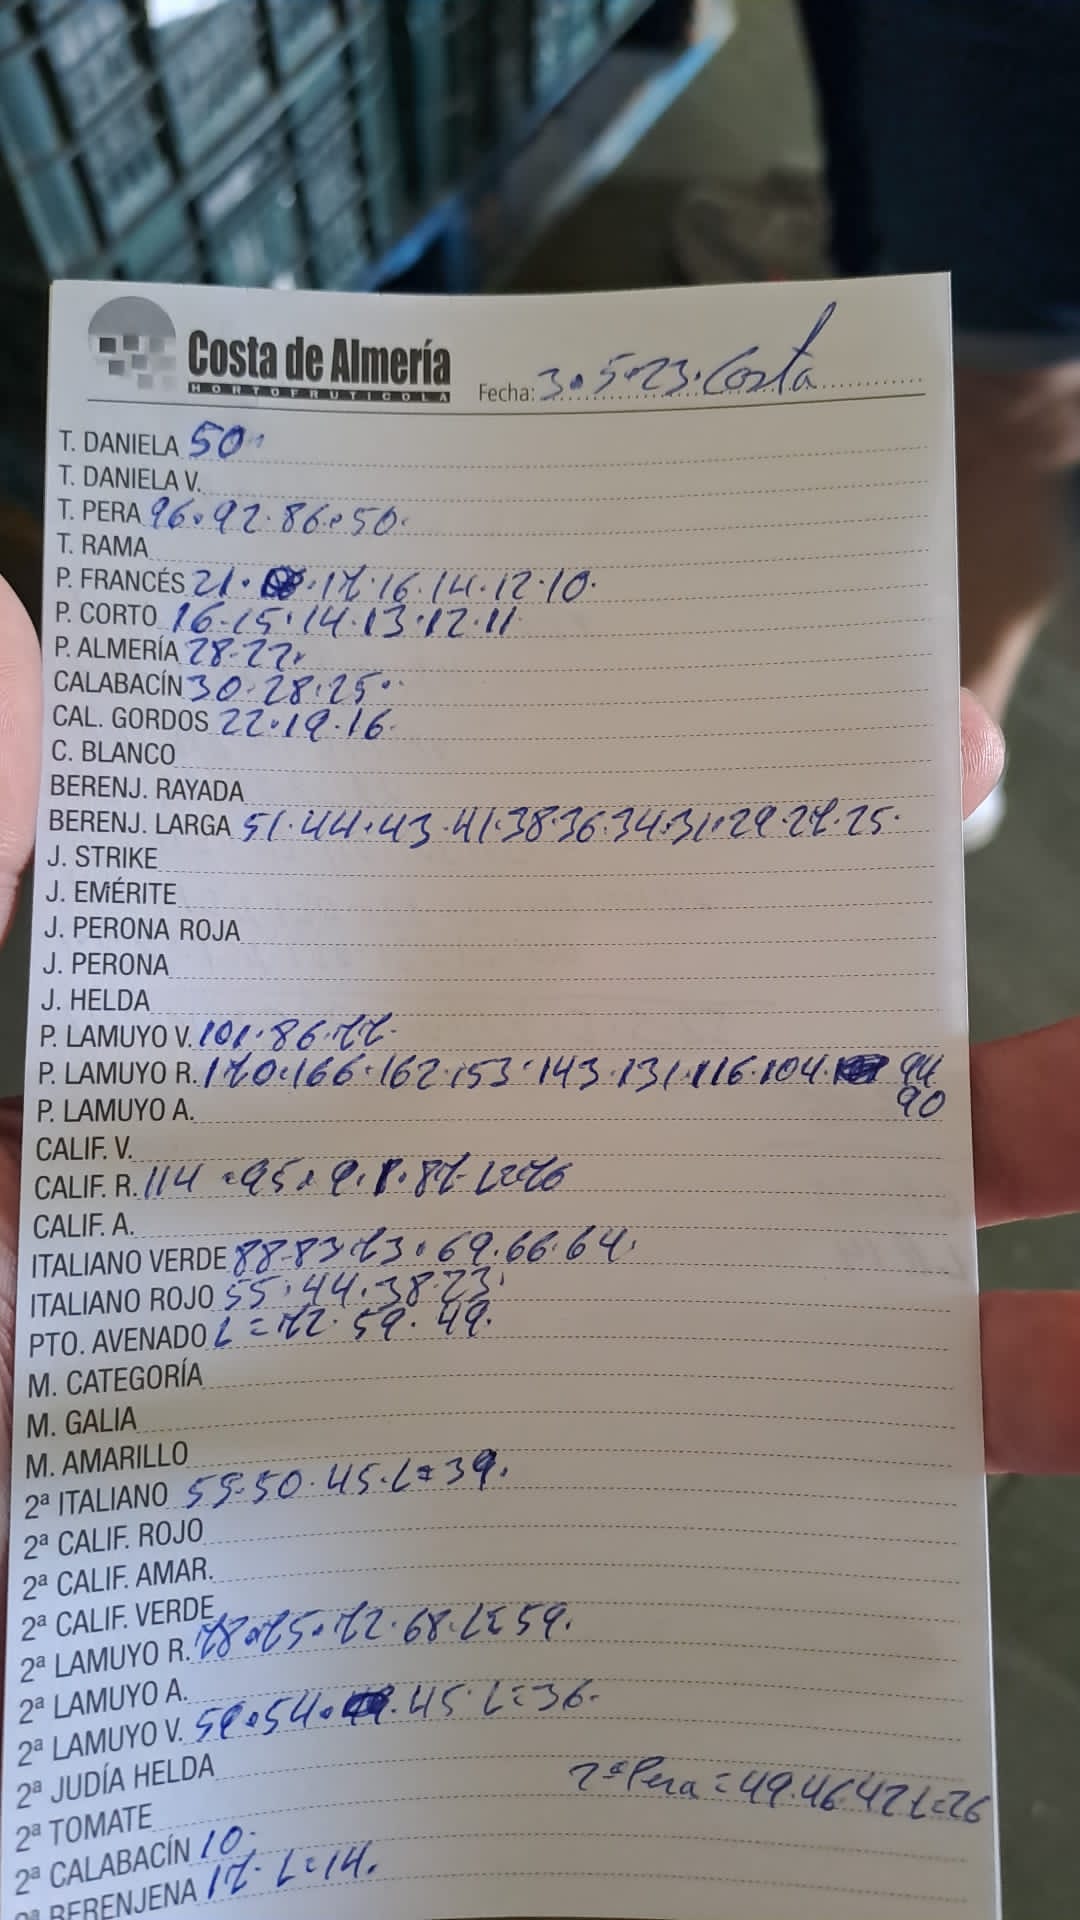 Costa de Almería
HORTOFRUTICOLA
Fecha: 3.5.23. Costa
T. DANIELA 50
T. DANIELA V.
T. PERA 96.92.86.50.
T. RAMA
P. FRANCÉS 21. 17.16.14.12.10.
P. CORTO 16-15.14.13.12.11
P. ALMERÍA 28-22.
CALABACÍN 30.28.25.
CAL. GORDOS 22.19.16.
C. BLANCO
BERENJ. RAYADA
BERENJ. LARGA 51.44.43.41.38.36.34.31.29.27.25.
J. STRIKE
J. EMÉRITE
J. PERONA ROJA
J. PERONA
J. HELDA
P. LAMUYO V. 101.86.77.
P. LAMUYO R. 170.166.162.153.143.131.116.104. 94
90
P. LAMUYO A.
CALIF. V.
CALIF. R. 114 .95. 87- L=76
CALIF. A.
ITALIANO VERDE 88-83.73.69.66.64.
ITALIANO ROJO 55.44.38.23.
PTO. AVENADO L=72.59.49.
M. CATEGORÍA
M. GALIA
M. AMARILLO
2ª ITALIANO 55-50.45.L=39.
2ª CALIF. ROJO
2ª CALIF. AMAR.
2ª CALIF. VERDE
2ª LAMUYO R. 78.75.72.68.L=59.
2ª LAMUYO A.
2ª LAMUYO V. 59.54. .45.L=36.
2ª JUDÍA HELDA
2ª Pera = 49.46 42 L=26
2ª TOMATE
2ª CALABACÍN 10.
2ª BERENJENA 17- L=14.